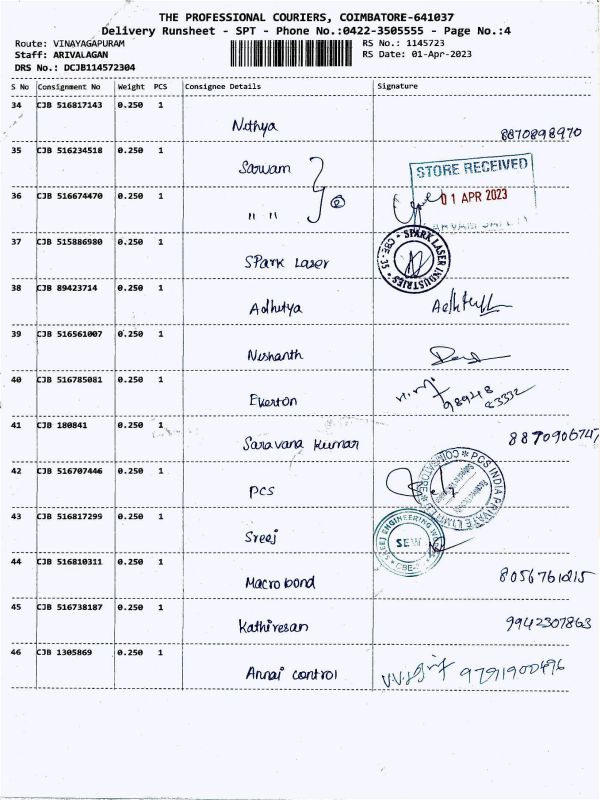 THE PROFESSIONAL COURIERS, COIMBATORE-641037
Delivery Runsheet - SPT - Phone No.:0422-3505555 - Page No.:4
Route: VINAYAGAPURAM RS No.: 1145723
Staff: ARIVALAGAN RS Date: 01-Apr-2023
DRS No.: DCJB114572304
S No Consignment No Weight PCS Consignee Details Signature
34 CJB 516817143 0.250 1
Nithya 8870898970
35 CJB 516234518 0.250 1
Sarwam STORE RECEIVED
36 CJB 516674470 0.250 1 01 APR 2023
" " " " ②
37 CJB 515886980 0.250 1
SPark Laser SPARK LASER INDUSTRIES * CBE - 35 *
38 CJB 89423714 0.250 1
Adhitya
39 CJB 516561007 0.250 1
Nishanth
40 CJB 516785081 0.250 1
Everton 98948 83332
41 CJB 180841 0.250 1
Saravana Kumar 8870906747
42 CJB 516707446 0.250 1
PCS PCS INDIA PRIVATE LIMITED * COIMBATORE *
43 CJB 516817299 0.250 1
Sreej SREEJ ENGINEERING SEW
44 CJB 516810311 0.250 1
Macro bond
45 CJB 516738187 0.250 1
Kathiresan 9942307863
46 CJB 1305869 0.250 1
Annai control 9791900496